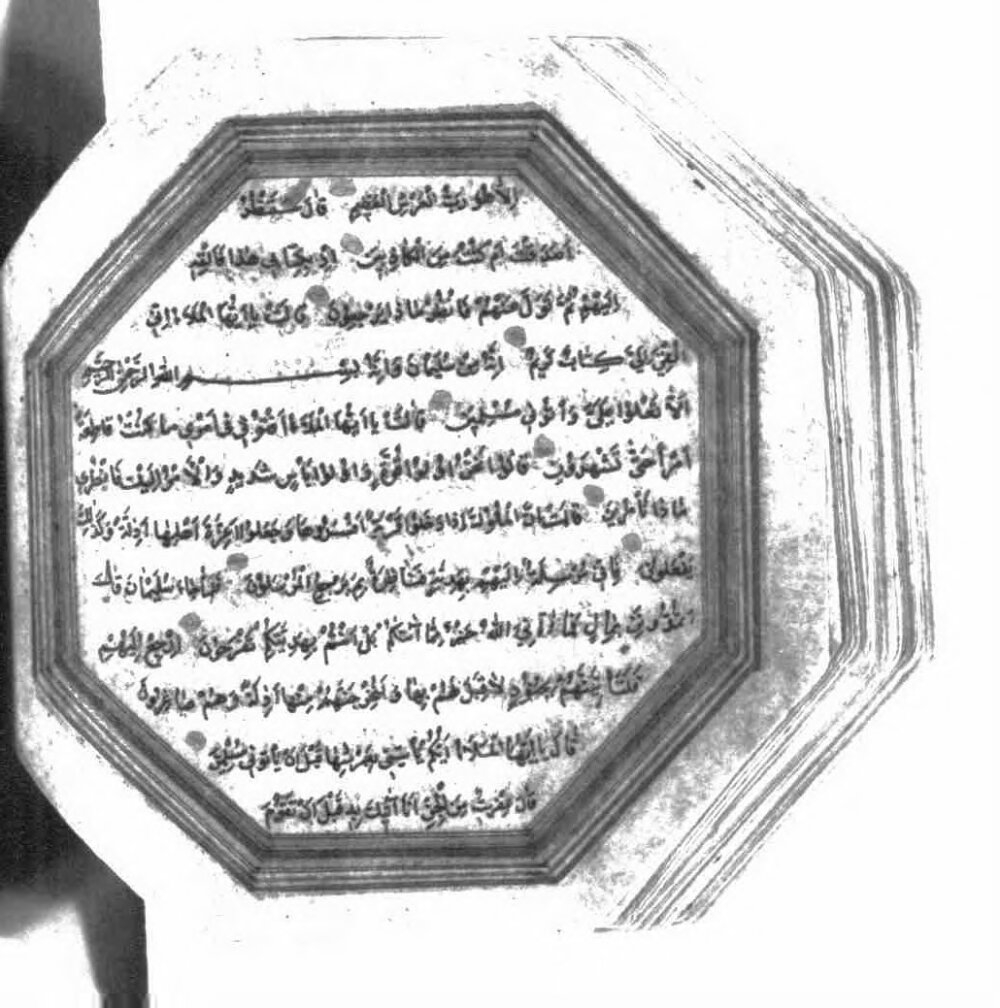 إلا هو رب العرش العظيم قال سننظر
أصدقت أم كنت من الكاذبين اذهب بكتابي هذا فألقه
إليهم ثم تول عنهم فانظر ماذا يرجعون قالت يا أيها الملاء إني
ألقي إلي كتاب كريم إنه من سليمان وإنه بسم الله الرحمن الرحيم
ألا تعلوا علي وأتوني مسلمين قالت يا أيها الملاء أفتوني في أمري ما كنت قاطعة
أمرا حتى تشهدون قالوا نحن أولوا قوة وأولوا بأس شديد والأمر إليك فانظري
ماذا تأمرين قالت إن الملوك إذا دخلوا قرية أفسدوها وجعلوا أعزة أهلها أذلة وكذلك
يفعلون وإني مرسلة إليهم بهدية فناظرة بم يرجع المرسلون فلما جاء سليمان قال
أتمدونن بمال فما آتاني الله خير مما آتاكم بل أنتم بهديتكم تفرحون ارجع إليهم
فلنأتينهم بجنود لا قبل لهم بها ولنخرجنهم منها أذلة وهم صاغرون
قال يا أيها الملاء أيكم يأتيني بعرشها قبل أن يأتوني مسلمين
قال عفريت من الجن أنا آتيك به قبل أن تقوم